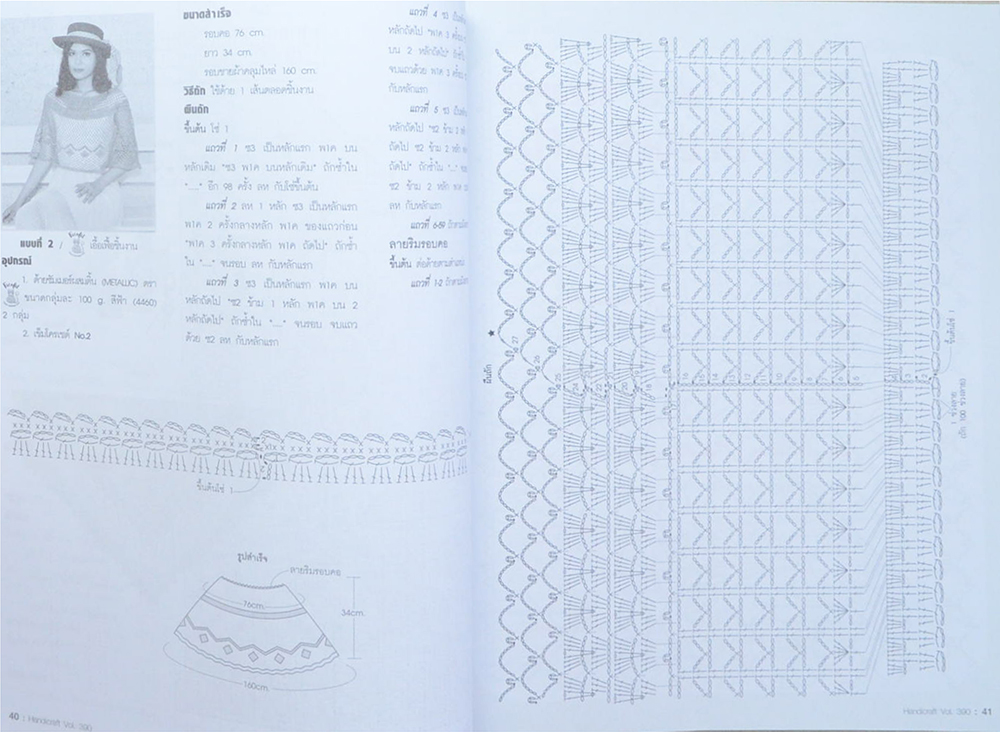 ขนาดสำเร็จ
รอบคอ 76 cm.
ยาว 34 cm.
รอบชายผ้าคลุมไหล่ 160 cm.
วิธีถัก ใช้ด้าย 1 เส้นตลอดชิ้นงาน
ผืนถัก
ขึ้นต้น โซ่ 1
แถวที่ 1 ซ3 เป็นหลักแรก พ1ค บน
หลักเดิม "ซ3 พ1ค บนหลักเดิม" ถักซ้ำใน
"....." อีก 98 ครั้ง ลห กับโซ่ขึ้นต้น
แถวที่ 2 ลห 1 หลัก ซ3 เป็นหลักแรก
พ1ค 2 ครั้งกลางหลัก พ1ค ของแถวก่อน
"พ1ค 3 ครั้งกลางหลัก พ1ค ถัดไป" ถักซ้ำ
ใน "....." จนรอบ ลห กับหลักแรก
แถวที่ 3 ซ3 เป็นหลักแรก พ1ค บน
หลักถัดไป "ซ2 ข้าม 1 หลัก พ1ค บน 2
หลักถัดไป" ถักซ้ำใน "....." จนรอบ จบแถว
ด้วย ซ2 ลห กับหลักแรก
แถวที่ 4 ซ3 เป็นหลั
หลักถัดไป "พ1ค 3 ครั้ง
บน 2 หลักถัดไป"
จบแถวด้วย พ1ค 3 ครั้ง
กับหลักแรก
แถวที่ 5 ซ3
หลักถัดไป "ซ2 ข้าม 2
ถัดไป ซ2 ข้าม 1
ถัดไป" ถักซ้ำใน
ซ2 ข้าม 2 หลัก
ลห กับหลักแรก
ลายริมรอบคอ
ขึ้นต้น
แถวที่ 1-2
แบบที่ 2 / เอื้อเฟื้อชิ้นงาน
อุปกรณ์
1. ด้ายซัมเมอร์ผสมดิ้น (METALLIC) ตรา
ขนาดกลุ่มละ 100 g. สีฟ้า (4460)
2 กลุ่ม
2. เข็มโครเชต์ No.2
ขึ้นต้นโซ่ 1
รูปสำเร็จ
ลายริมรอบคอ
76cm.
34cm.
160cm.
40 : Handicraft Vol. 390
ผืนถัก
27
26
ขึ้นต้นโซ่ 1
1 ช่วงลาย
ถัก 100 ช่วงลาย
Handicraft Vol. 390 : 41